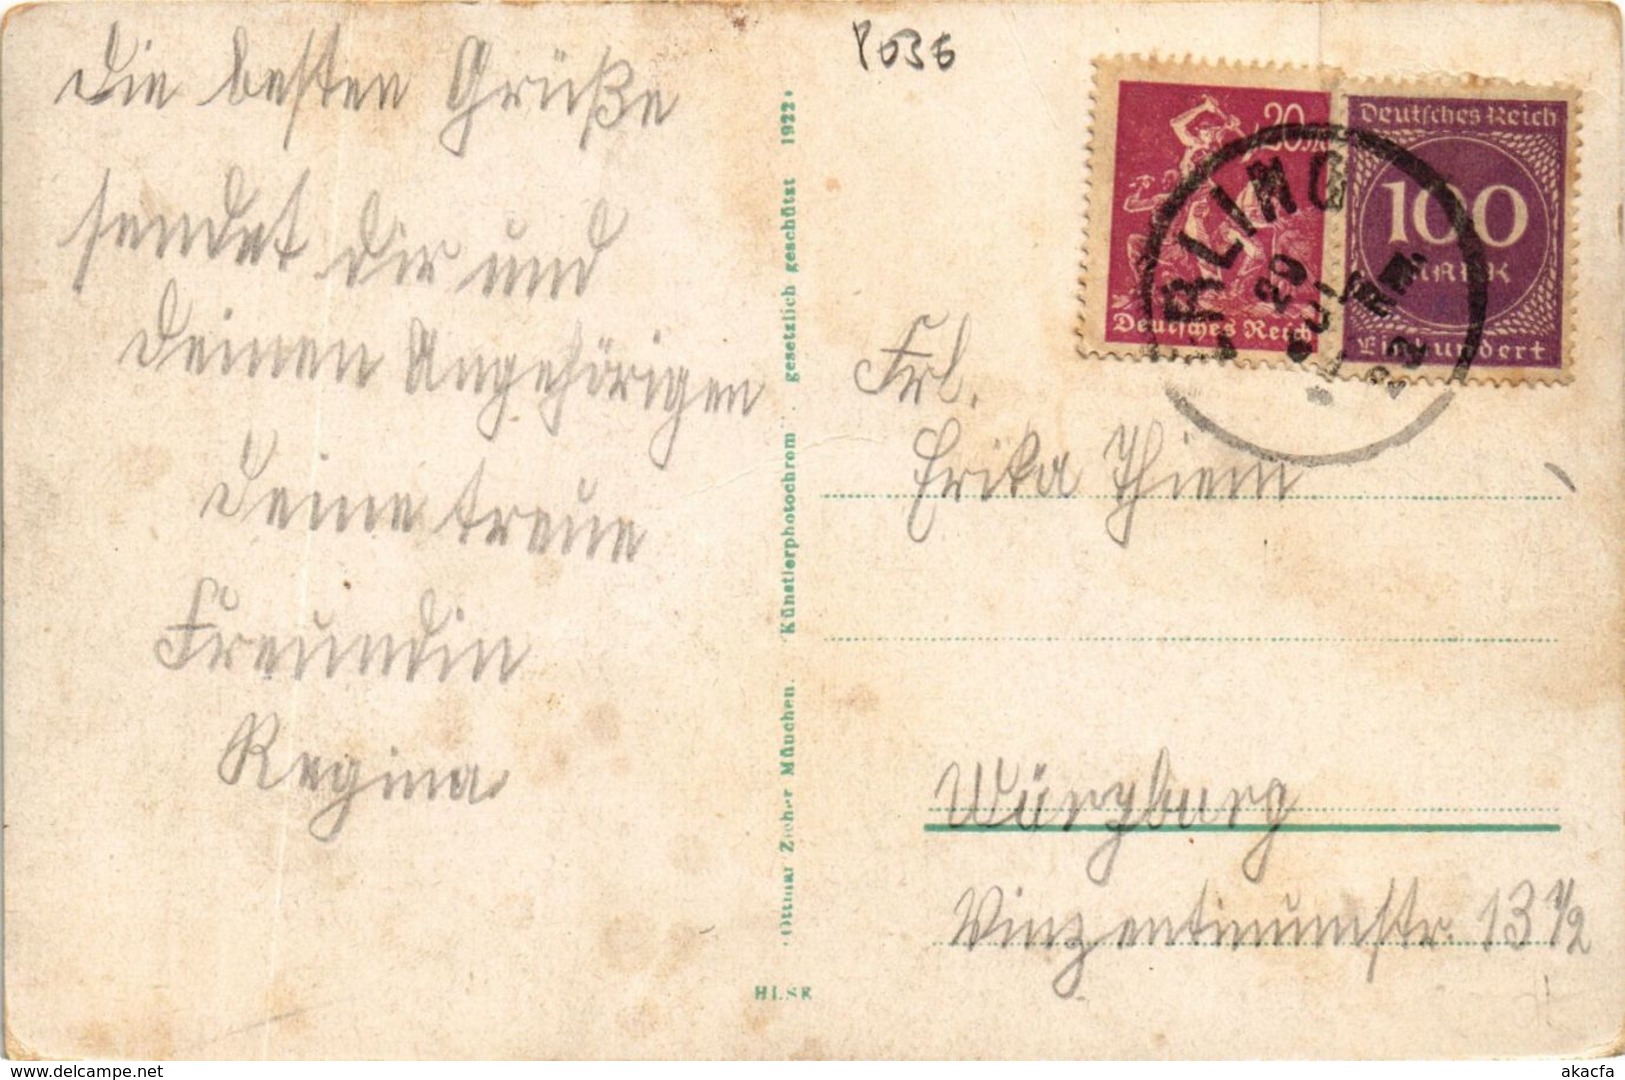 Die besten Grüße
sendet Dir und
Deinen Angehörigen
Deine treue
Freundin
Regina
Ottmar Zieher München. Künstlerphotochrom gesetzlich geschützt 1922.
P036
20
Deutsches Reich
Deutsches Reich
100
MARK
Einhundert
RLING
20
JUL
Frl.
Erika Thiem
Würzburg
Vinzentinumstr. 13 1/2
https://www.delcampe.net
akacfa